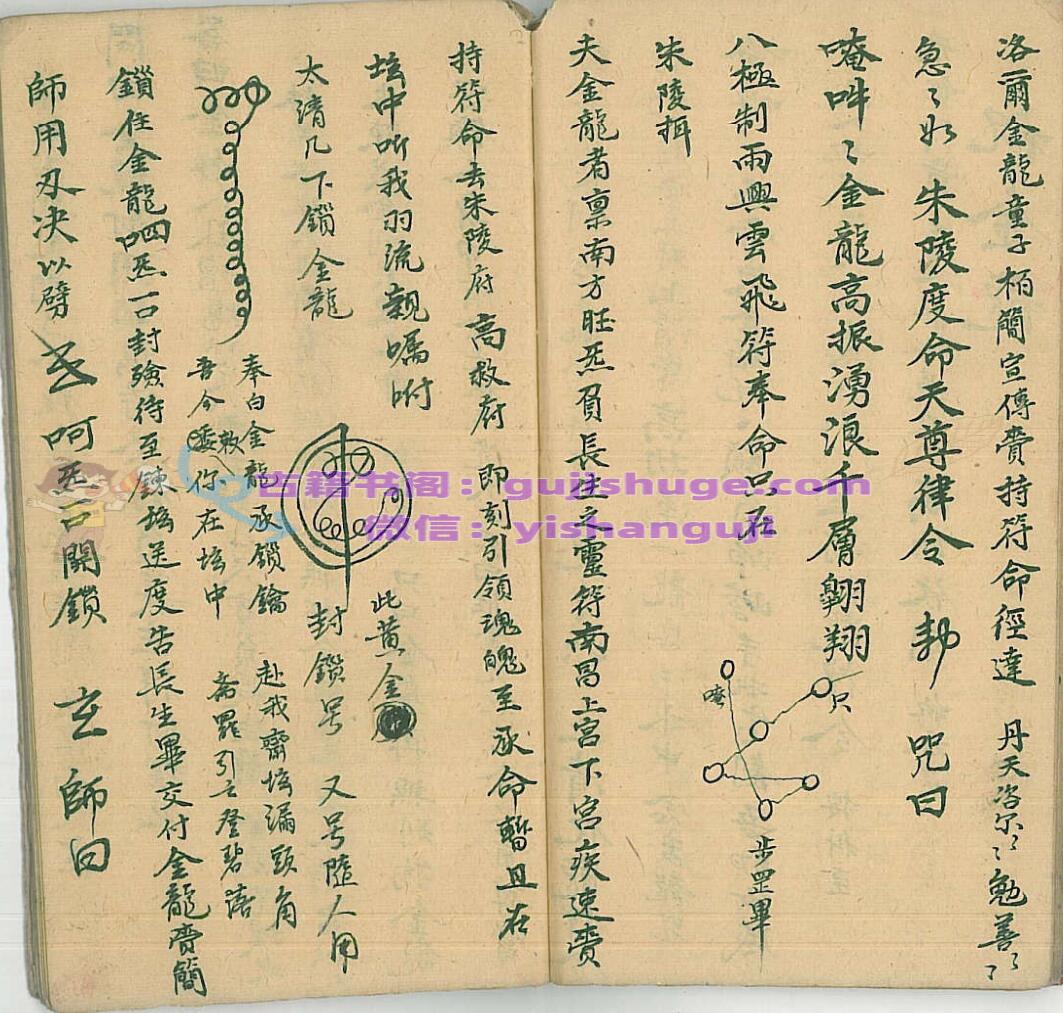 洛爾金龍童子栢簡宣傳賫持符命徑達 丹天咨尔〻勉善〻
急〻如 朱陵度命天尊律令 勅 咒曰
唵吽〻金龍高振湧浪千層翱翔
八極制雨興雲飛符奉命只在
唵
只
步罡畢
朱陵揖
夫金龍者禀南方旺炁負長生之靈符南昌上宫下宫疾速賫
持符命去朱陵府 高救府 即刻引領魂魄至承命暫且在
坛中听我羽流親囑咐
太清几下鎖金龍
此黄金
封鎖号 又号隨人用
奉白金龍承鎖鑰 赴我齋坛漏頭角
吾今委敕你在坛中 斋罷引之登碧落
鎖住金龍呬炁一口封殮待至鍊坛送度告長生畢交付金龍賫簡
師用刃决以劈 呵炁一口開鎖 玄師曰
古籍书阁：gujishuge.com
微信：yishanguji